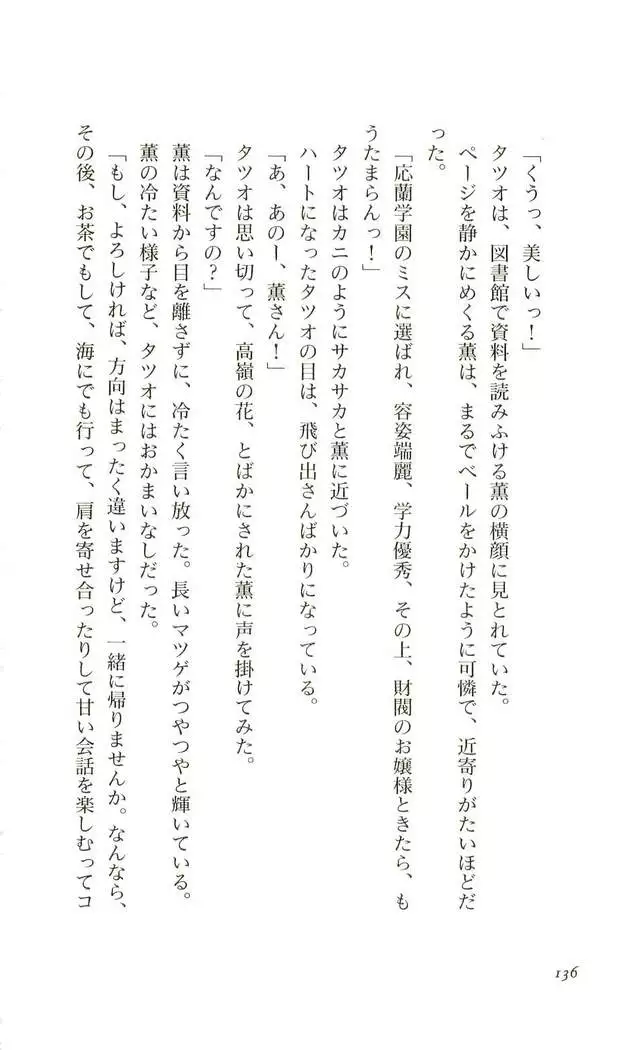 「くうっ、美しいっ！」
タツオは、図書館で資料を読みふける薫の横顔に見とれていた。
ページを静かにめくる薫は、まるでベールをかけたように可憐で、近寄りがたいほどだ
った。
「応蘭学園のミスに選ばれ、容姿端麗、学力優秀、その上、財閥のお嬢様ときたら、も
うたまらんっ！」
タツオはカニのようにサカサカと薫に近づいた。
ハートになったタツオの目は、飛び出さんばかりになっている。
「あ、あのー、薫さん！」
タツオは思い切って、高嶺の花、とばかにされた薫に声を掛けてみた。
「なんですの？」
薫は資料から目を離さずに、冷たく言い放った。長いマツゲがつやつやと輝いている。
薫の冷たい様子など、タツオにはおかまいなしだった。
「もし、よろしければ、方向はまったく違いますけど、一緒に帰りませんか。なんなら、
その後、お茶でもして、海にでも行って、肩を寄せ合ったりして甘い会話を楽しむってコ
136